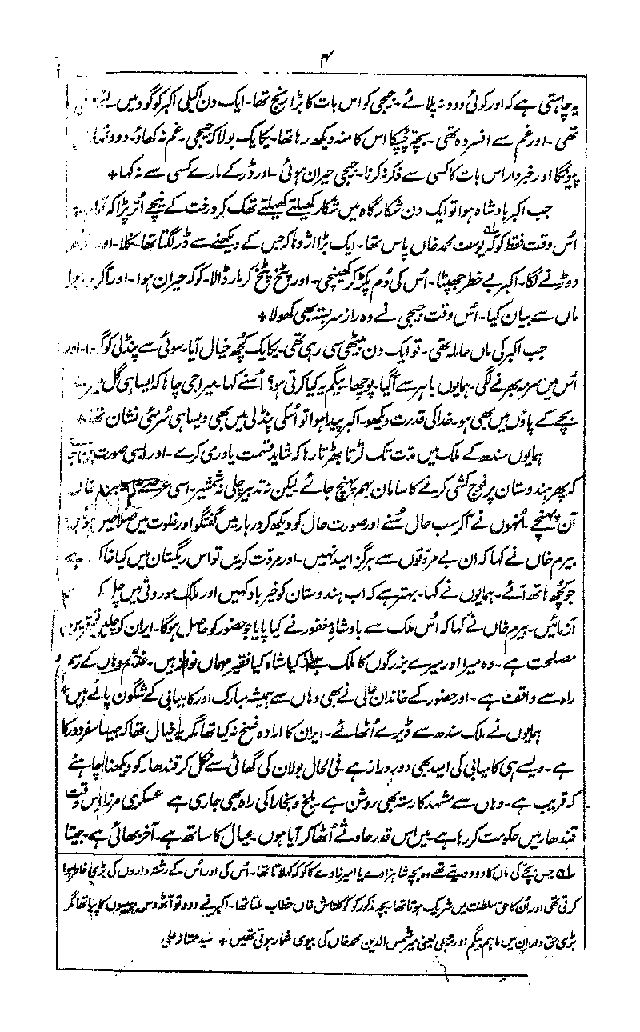 ۴
یہ چاہتی ہے کہ اور کوئی دودھ نہ پلائے۔ جیجی کو اس بات کا بڑا رنج تھا۔ ایک دن اکیلی اکبر کو گود میں لئے
تھی۔ اور غم سے افسردہ تھی۔ بچہ چپکا اس کا منہ دیکھ رہا تھا۔ یکایک بولا کہ جیجی۔ غم نہ کھاؤ۔ دودھ تمہارا
پیؤنگا اور خبردار اس بات کا کسی سے ذکر نہ کرنا۔ جیجی حیران ہوئی۔ اور ڈر کے مارے کسی سے نہ کہا +
جب اکبر بادشاہ ہوا تو ایک دن شکارگاہ میں شکار کھیلتے کھیلتے تھک کر درخت کے نیچے اُتر پڑا کہ
اُس وقت فقط کوکہ یوسف محمد خاں پاس تھا۔ ایک بڑا اژدہا کہ جس کے دیکھنے سے ڈر لگتا تھا نکلا۔ اور
دوڑنے لگا۔ اکبر بے خطر جھپٹا۔ اُس کی دُم پکڑ کر کھینچی۔ اور پٹخ پٹخ کر مار ڈالا۔ کوکہ حیران ہوا۔ اور آکر
ماں سے بیان کیا۔ اُس وقت جیجی نے وہ راز سربستہ بھی کھولا +
جب اکبر کی ماں حاملہ تھی۔ تو ایک دن بیٹھی سی رہی تھی۔ یکایک کچھ خیال آیا۔ سوئی سے پنڈلی کو گودا۔ اور
اُس میں سرمہ بھرنے لگی۔ ہمایوں باہر سے آگیا۔ پوچھا بیگم یہ کیا کرتی ہو؟ اُسنے کہا۔ میرا جی چاہا کہ ایسا ہی گل
بچے کے پاؤں میں بھی ہو۔ خدا کی قدرت دیکھو۔ اکبر پیدا ہوا تو اُسکی پنڈلی میں بھی ویسا ہی سُرمئی نشان تھا +
ہمایوں سندھ کے ملک میں مدت تک لڑتا بھڑتا رہا کہ شاید قسمت یاوری کرے۔ اور ایسی صورت
کہ پھر ہندوستان پر فوج کشی کرنے کا سامان بہم پہنچ جائے لیکن نہ تدبیر چلی نہ شمشیر۔ اسی
آن پہنچے۔ اُنہوں نے آکر سب حال سُنے اور صورت حال کو دیکھ کر دربار میں گفتگو اور خلوت میں
بیرم خاں نے کہا کہ ان بے مروتوں سے ہرگز امید نہیں۔ اور مروت کریں تو اس ریگستان میں کیا خاک
جو کچھ ہاتھ آئے۔ ہمایوں نے کہا۔ بہتر ہے کہ اب ہندوستان کو خیرباد کہیں اور ملک موروثی میں چل کر
آزمائیں۔ بیرم خاں نے کہا کہ اُس ملک سے بادشاہ مغفور نے کیا پایا جو حضور کو حاصل ہوگا۔ ایران کو چلئے
مصلحت ہے۔ وہ میرا اور میرے بزرگوں کا ملک ہے کیا شاہ کیا فقیر مہماں نواز ہیں۔ غلام وہاں کے رسم و
راہ سے واقف ہے۔ اور حضور کے خاندان عالی نے بھی وہاں سے ہمیشہ مبارک اور کامیابی کے شگون پائے ہیں +
ہمایوں نے ملک سندھ سے ڈیرے اُٹھائے۔ ایران کا ارادہ فسخ نہ کیا تھا مگر یہ خیال تھا کہ جیسا سفر دور کا
ہے۔ ویسے ہی کامیابی کی امید بھی دور دراز ہے۔ فی الحال بولان کی گھاٹی سے نکل کر قندھار کو دیکھنا چاہئے
کہ قریب ہے۔ وہاں سے مشہد کا رستہ بھی روشن ہے۔ بلخ و بخارا کی راہ بھی جاری ہے عسکری مرزا اس وقت
قندھار میں حکومت کر رہا ہے۔ میں اس قدر حادثے اُٹھا کر آیا ہوں۔ عیال کا ساتھ ہے۔ آخر بھائی ہے۔ جیتا
لہ جس بچے کی ماں کا دودھ پیتے تھے وہ بچہ شاہزادے یا امیر زادے کا کوکہ کہلاتا تھا۔ اُس کی اور اُس کے رشتہ داروں کی بڑی خاطر ہوا
کرتی تھی اور اُن کا حق سلطنت میں شریک ہوتا تھا بچہ مذکور کو کوکلتاش خاں خطاب ملتا تھا۔ اکبر نے دودھ تو آٹھ دس بیبیوں کا پیا تھا مگر
بڑی حق دار اِن میں ماہم بیگم اور جیجی یعنی میر شمس الدین محمد خاں کی بیوی شمار ہوتی تھیں + سید ممتاز علی